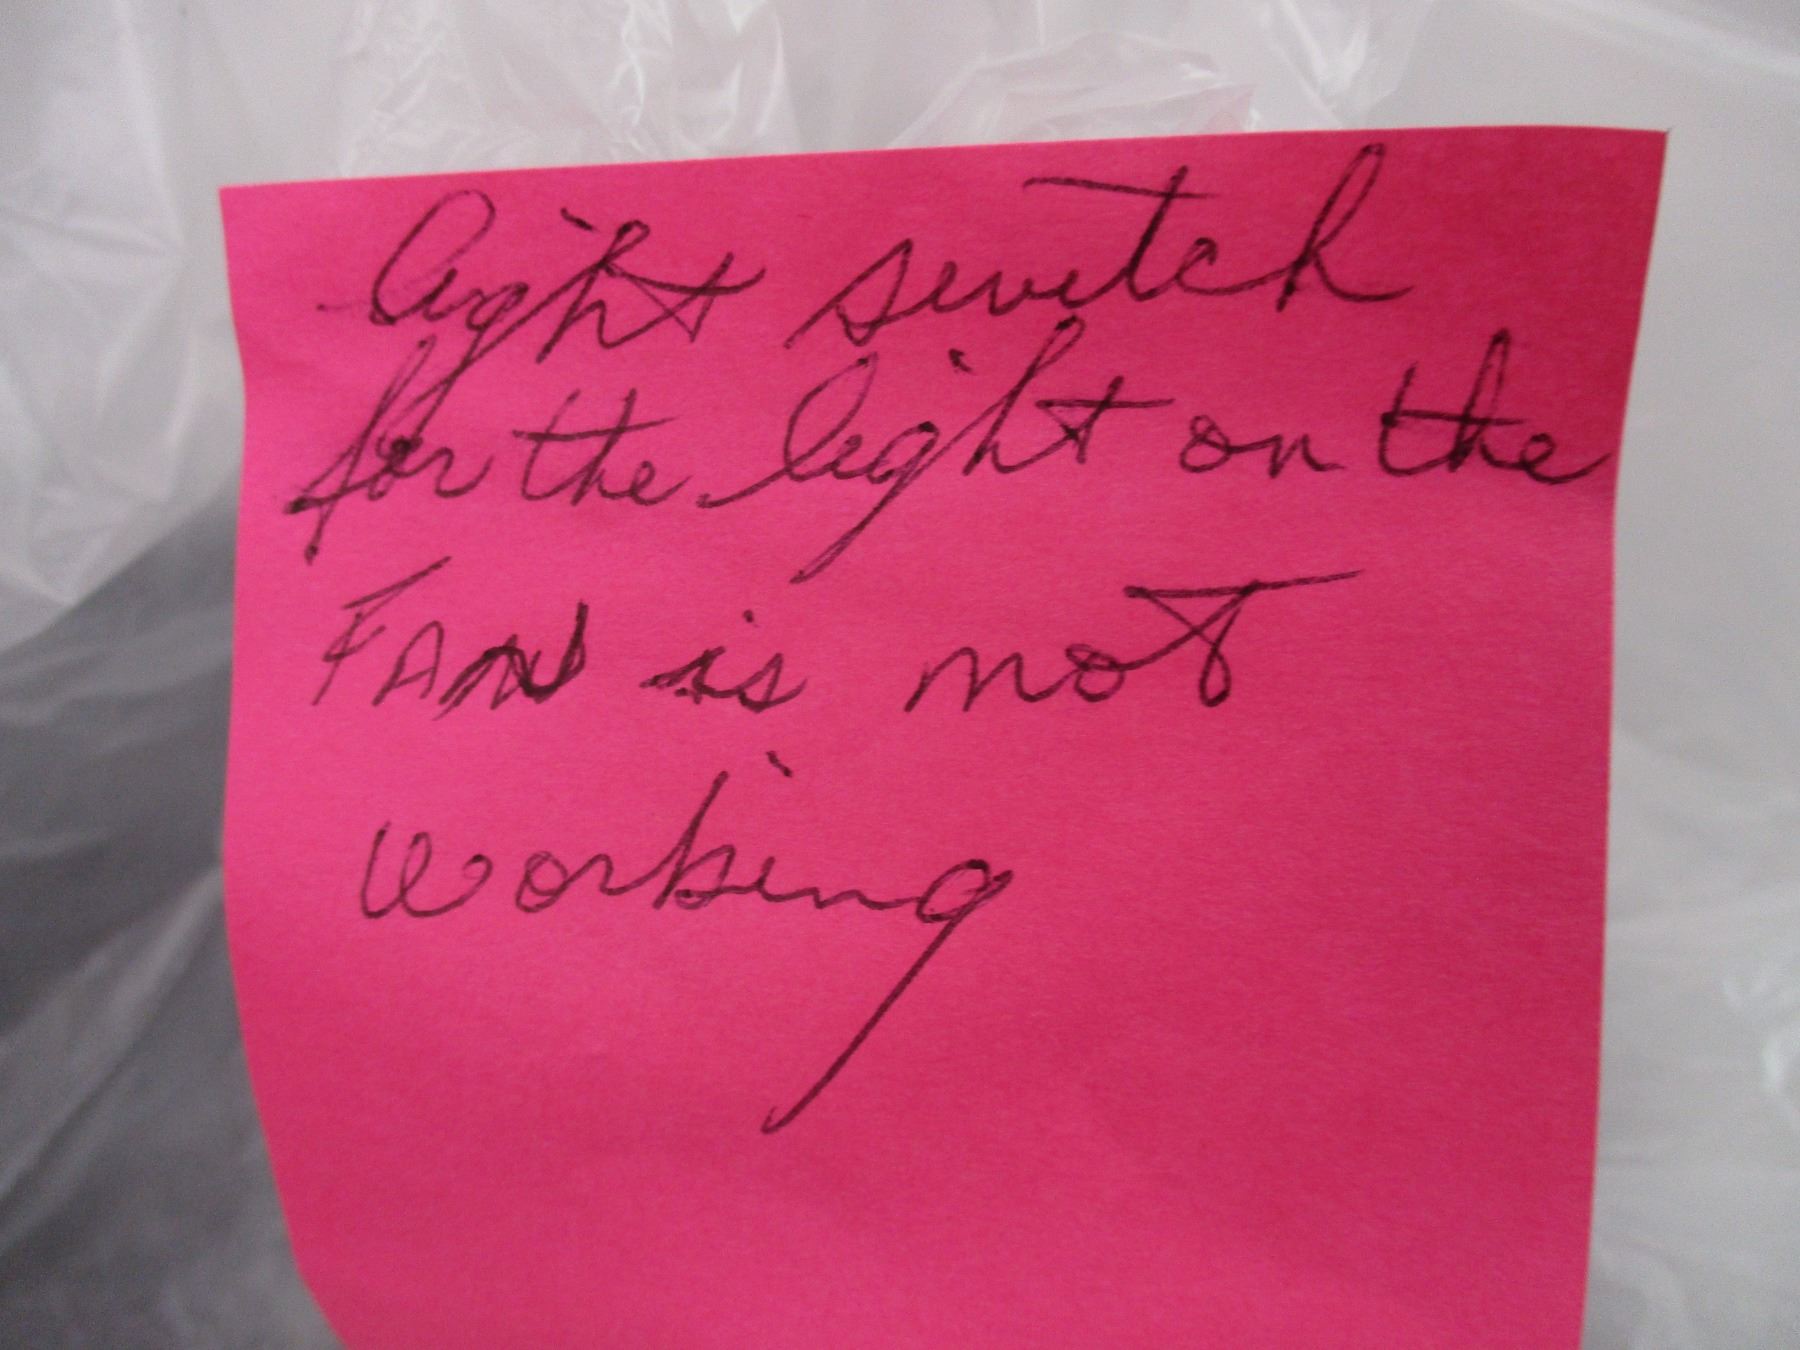 light switch
for the light on the
FAN is not
working